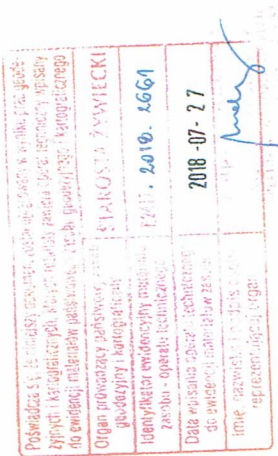 Poświadcza się, że niniejszy dokument został opracowany w wyniku prac geode-
zyjnych i kartograficznych, których rezultaty zawiera operat techniczny wpisany
do ewidencji materiałów państwowego zasobu geodezyjnego i kartograficznego
Organ prowadzący państwowy zasób
geodezyjny i kartograficzny
STAROSTA ŻYWIECKI
Identyfikator ewidencyjny materiału
zasobu - operatu technicznego
2018. 2661
Data wpisania operatu technicznego
do ewidencji materiałów zasobu
2018 -07- 27
Imię, nazwisko i podpis osoby
reprezentującej organ